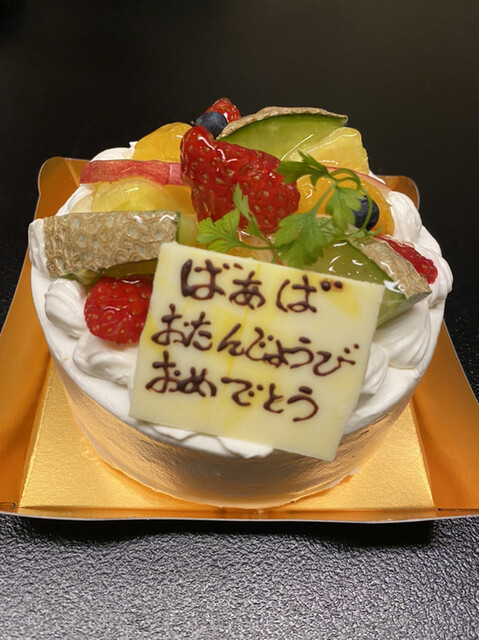 ばあば
おたんじょうび
おめでとう